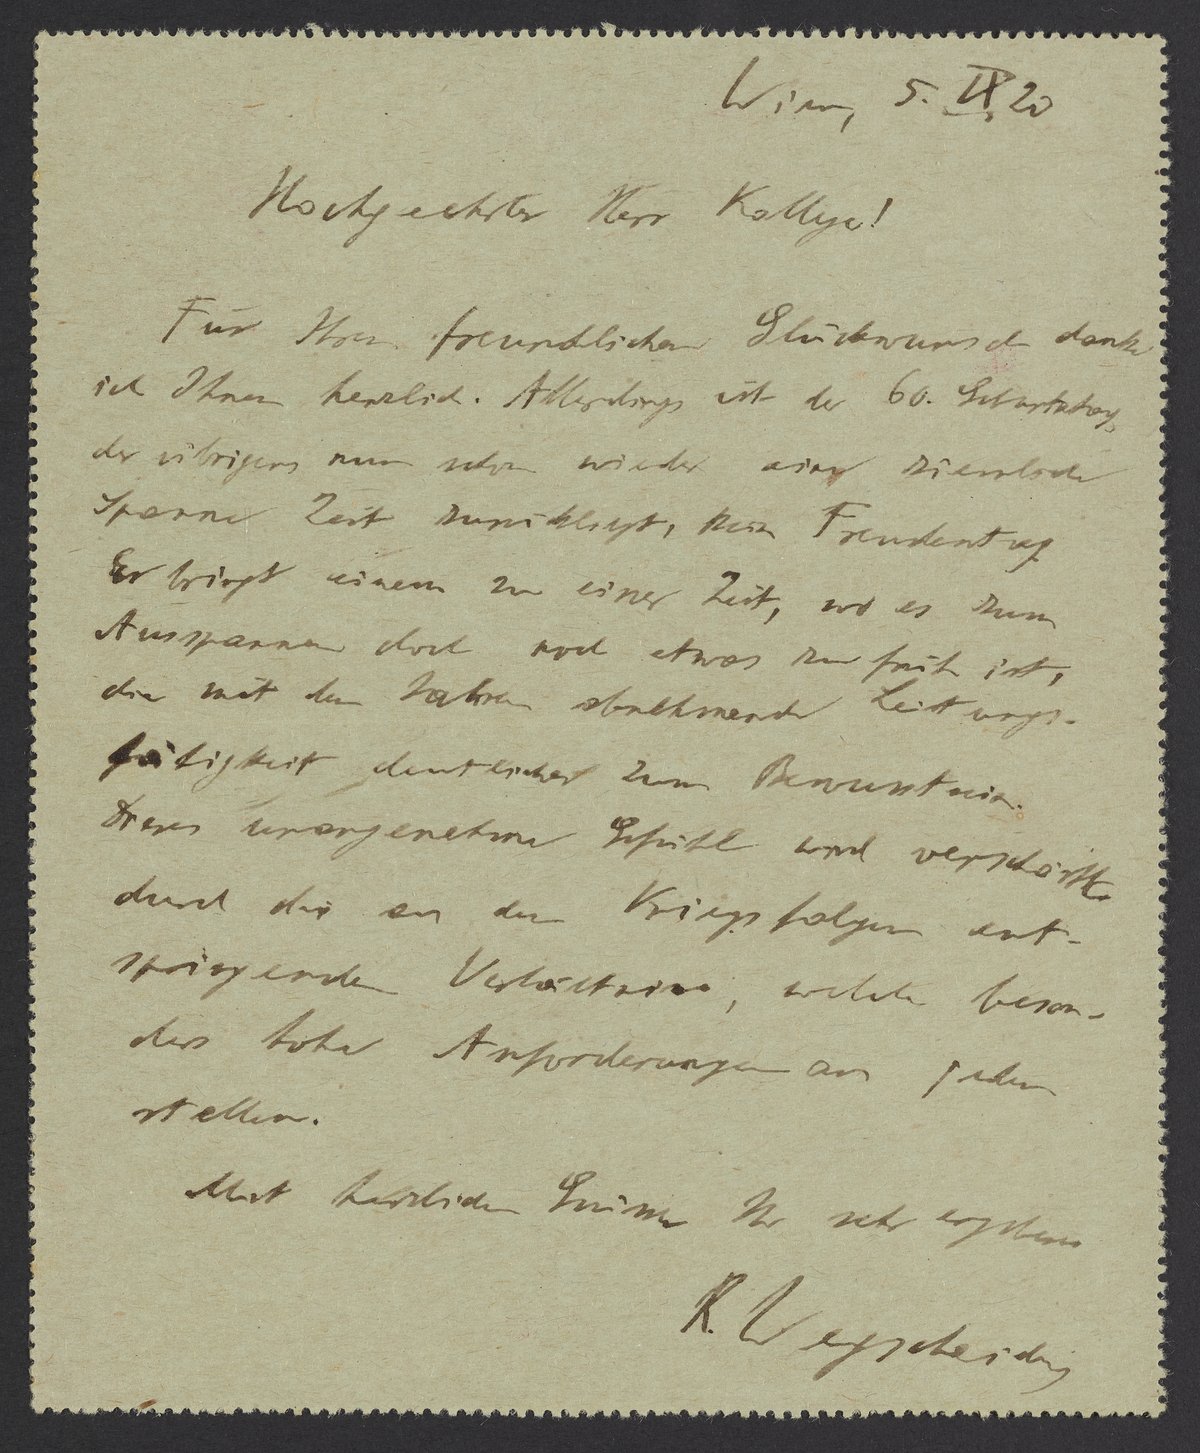 Wien, 5. IX 20
Hochgeehrter Herr Kollege!
Für Ihren freundlichen Glückwunsch danke
ich Ihnen herzlich. Allerdings ist der 60. Geburtstag,
der übrigens nun schon wieder eine ziemliche
Spanne Zeit zurückliegt, kein Freudentag.
Er bringt einem zu einer Zeit, wo es zum
Ausspannen doch noch etwas zu früh ist,
die mit den Jahren abnehmende Leistungs-
fähigkeit deutlicher zum Bewusstsein.
Dieses unangenehme Gefühl wird verschärft
durch die aus den Kriegsfolgen ent-
springenden Verhältnisse, welche beson-
ders hohe Anforderungen an jeden
stellen.
Mit herzlichen Grüssen Ihr sehr ergebener
R. Wegscheider